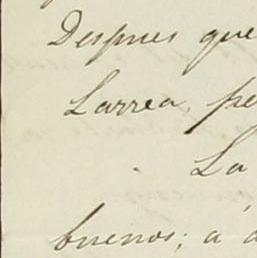 Despues que
Larrea, pe
La
buenos; a a